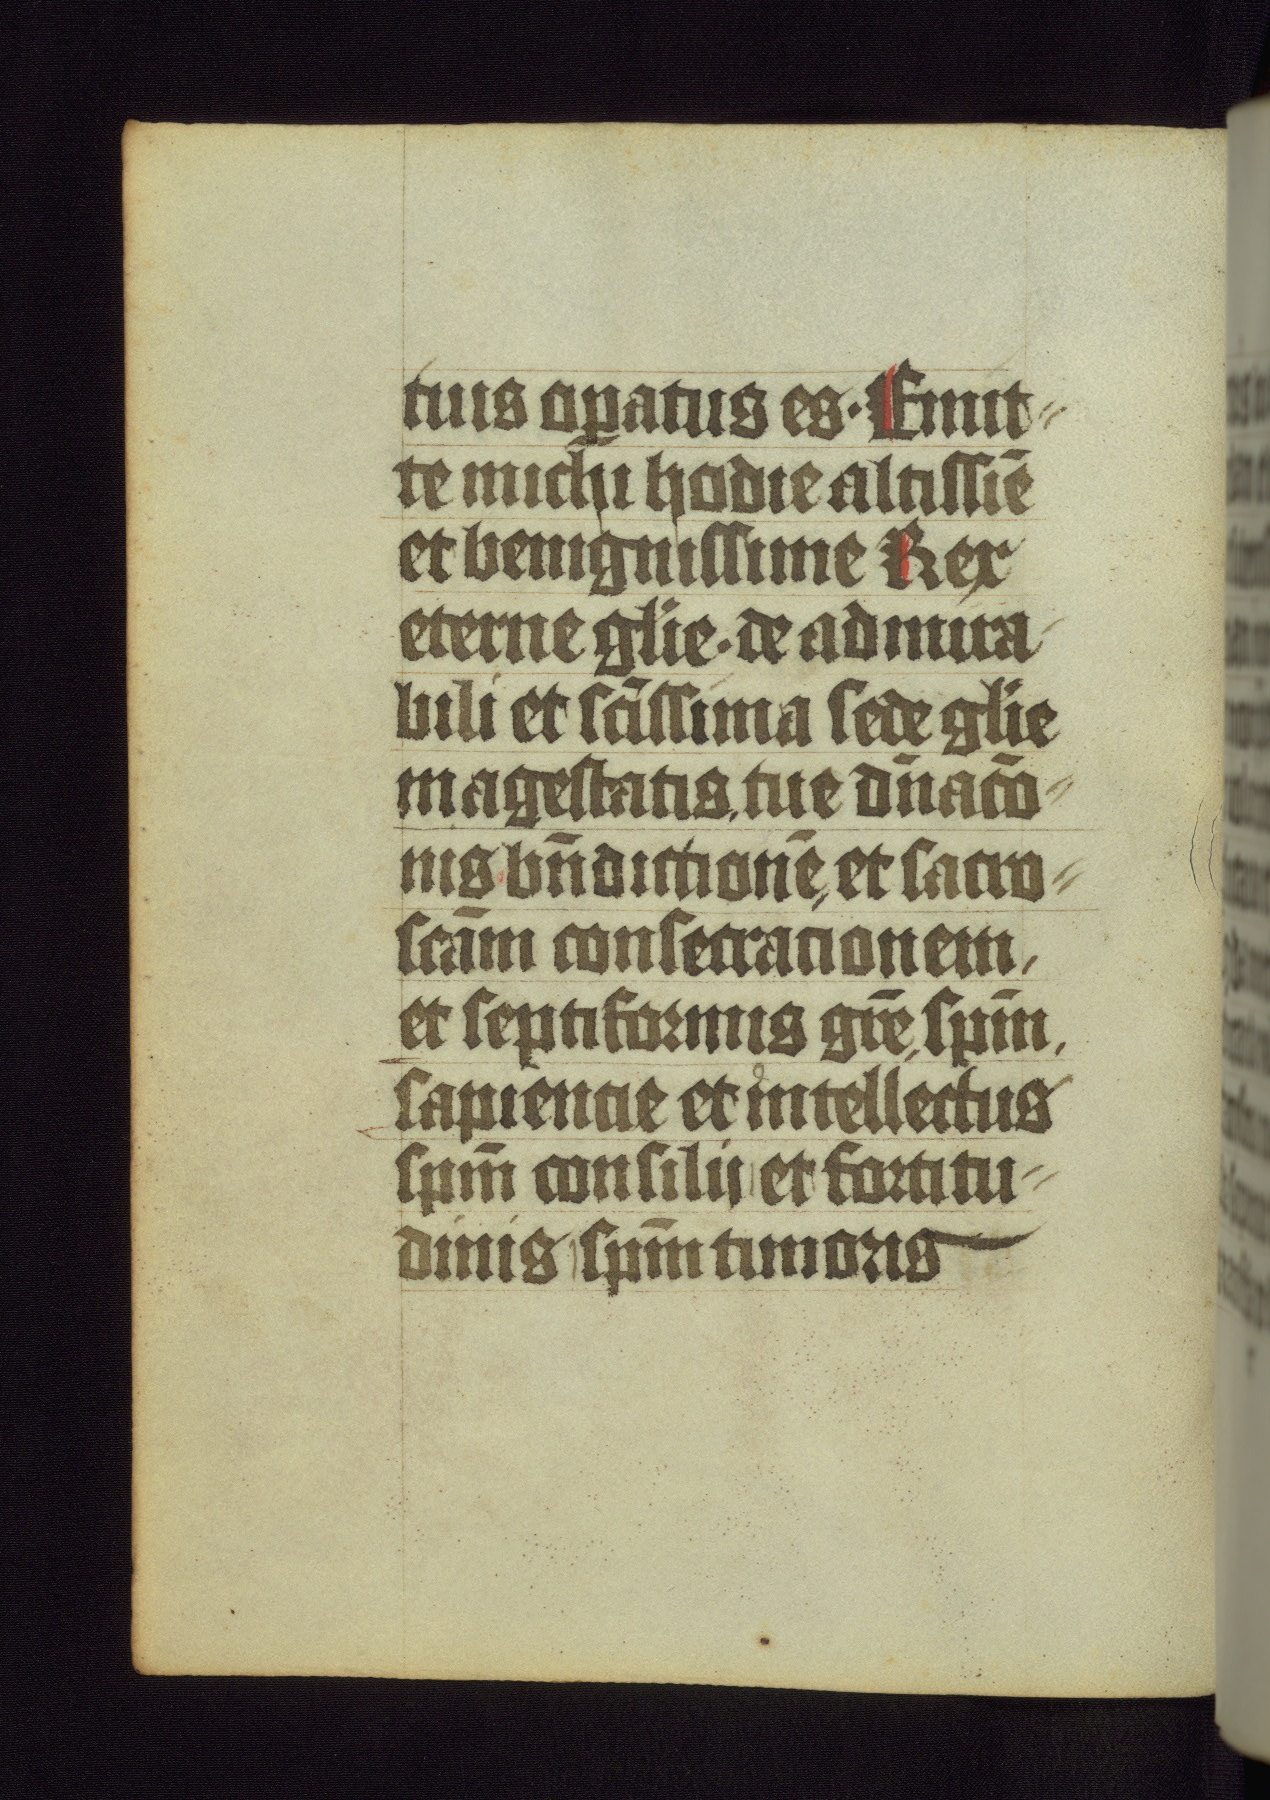 tuis op̲atus es · Emit⸗
te michi hodie altissiē
et benignissime Rex
eterne gl̄ie · de admira
bili et sc̄issima sede gl̄ie
magestatis tue dn̄acō⸗
nis bn̄dictionē, et sacro⸗
scām consecracionem,
et septiformis grē, spm̄,
sapiencie et intellectus
spm̄ consilii et fortitu⸗
dinis spm̄ timoris